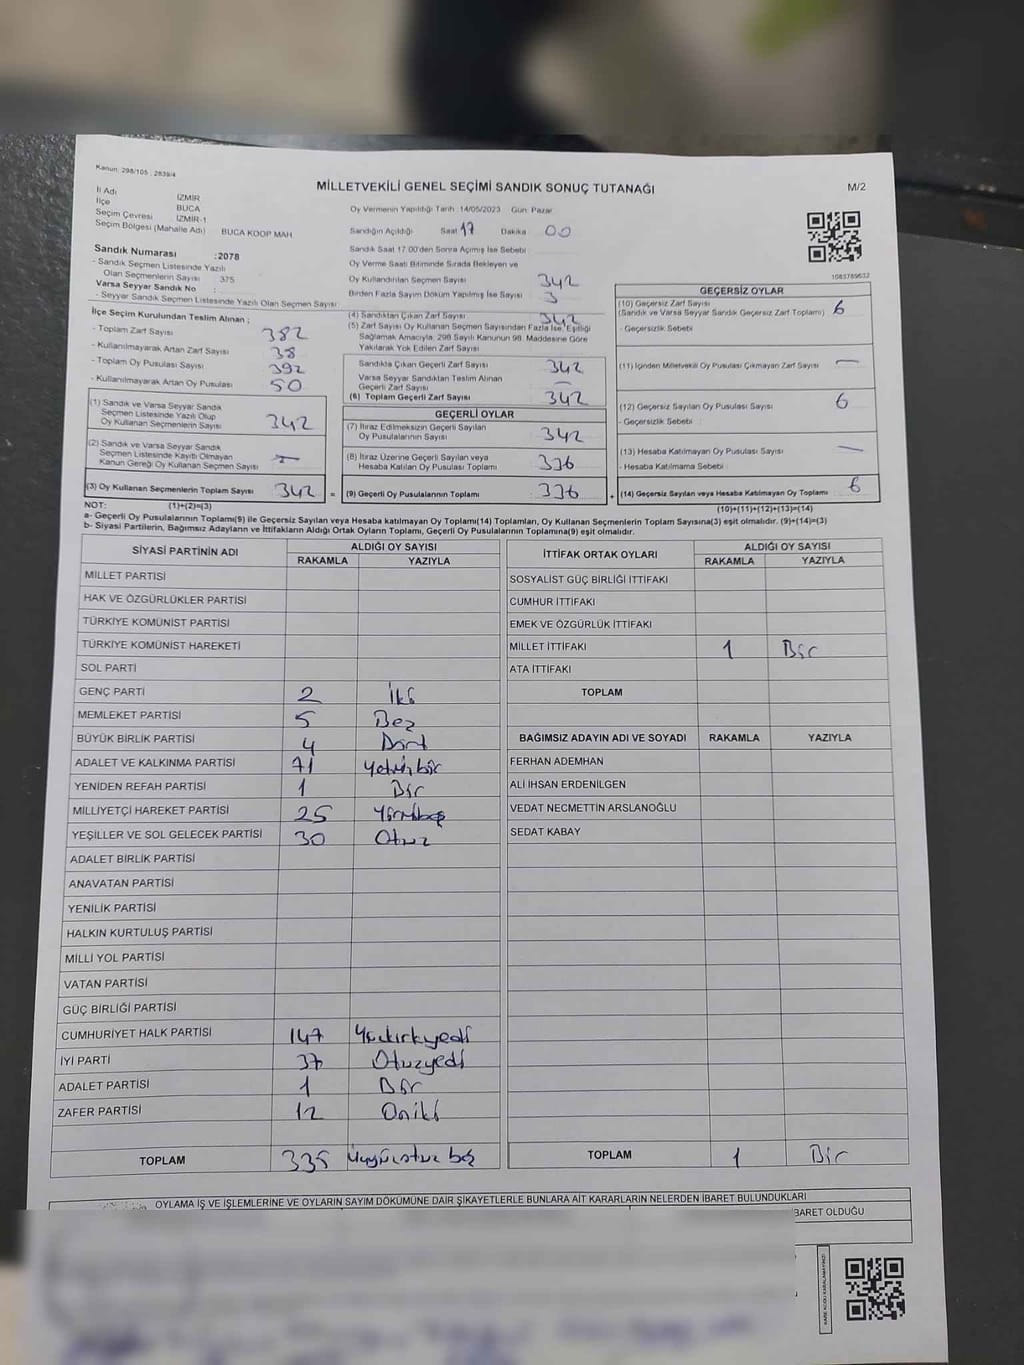 Kanun: 298/105 ; 2839/4
MİLLETVEKİLİ GENEL SEÇİMİ SANDIK SONUÇ TUTANAĞI
M/2
İl Adı İZMİR
İlçe BUCA
Seçim Çevresi İZMİR-1
Seçim Bölgesi (Mahalle Adı) BUCA KOOP MAH
Oy Vermenin Yapıldığı Tarih :14/05/2023 Gün: Pazar
Sandığın Açıldığı Saat 17 Dakika 00
Sandık Saat 17.00'den Sonra Açılmış İse Sebebi
Oy Verme Saati Bitiminde Sırada Bekleyen ve
Oy Kullandırılan Seçmen Sayısı 342
Birden Fazla Sayım Döküm Yapılmış İse Sayısı 3
1083789632
Sandık Numarası :2078
- Sandık Seçmen Listesinde Yazılı
Olan Seçmenlerin Sayısı 375
Varsa Seyyar Sandık No :
- Seyyar Sandık Seçmen Listesinde Yazılı Olan Seçmen Sayısı :
İlçe Seçim Kurulundan Teslim Alınan ;
- Toplam Zarf Sayısı 382
- Kullanılmayarak Artan Zarf Sayısı 38
- Toplam Oy Pusulası Sayısı 392
- Kullanılmayarak Artan Oy Pusulası 50
(1) Sandık ve Varsa Seyyar Sandık
Seçmen Listesinde Yazılı Olup
Oy Kullanan Seçmen Sayısı 342
(2) Sandık ve Varsa Seyyar Sandık
Seçmen Listesinde Kayıtlı Olmayan
Kanun Gereği Oy Kullanan Seçmen Sayısı
(3) Oy Kullanan Seçmenlerin Toplam Sayısı 342 =
(4) Sandıktan Çıkan Zarf Sayısı 342
(5) Zarf Sayısı Oy Kullanan Seçmen Sayısından Fazla İse, Eşitliği
Sağlamak Amacıyla, 298 Sayılı Kanunun 98. Maddesine Göre
Yakılarak Yok Edilen Zarf Sayısı
Sandıkta Çıkan Geçerli Zarf Sayısı 342
Varsa Seyyar Sandıktan Teslim Alınan
Geçerli Zarf Sayısı —
(6) Toplam Geçerli Zarf Sayısı 342
GEÇERLİ OYLAR
(7) İtiraz Edilmeksizin Geçerli Sayılan
Oy Pusulalarının Sayısı 342
(8) İtiraz Üzerine Geçerli Sayılan veya
Hesaba Katılan Oy Pusulası Toplamı 336
(9) Geçerli Oy Pusulalarının Toplamı 336 +
GEÇERSİZ OYLAR
(10) Geçersiz Zarf Sayısı
(Sandık ve Varsa Seyyar Sandık Geçersiz Zarf Toplamı) 6
- Geçersizlik Sebebi :
(11) İçinden Milletvekili Oy Pusulası Çıkmayan Zarf Sayısı —
(12) Geçersiz Sayılan Oy Pusulası Sayısı 6
- Geçersizlik Sebebi :
(13) Hesaba Katılmayan Oy Pusulası Sayısı —
- Hesaba Katılmama Sebebi :
(14) Geçersiz Sayılan veya Hesaba Katılmayan Oy Toplamı 6
NOT: (1)+(2)=(3)
(10)+(11)+(12)+(13)=(14)
a- Geçerli Oy Pusulalarının Toplamı(9) ile Geçersiz Sayılan veya Hesaba katılmayan Oy Toplamı(14) Toplamları, Oy Kullanan Seçmenlerin Toplam Sayısına(3) eşit olmalıdır. (9)+(14)=(3)
b- Siyasi Partilerin, Bağımsız Adayların ve İttifakların Aldığı Ortak Oyların Toplamı, Geçerli Oy Pusulalarının Toplamına(9) eşit olmalıdır.
SİYASİ PARTİNİN ADI ALDIĞI OY SAYISI
RAKAMLA YAZIYLA
MİLLET PARTİSİ
HAK VE ÖZGÜRLÜKLER PARTİSİ
TÜRKİYE KOMÜNİST PARTİSİ
TÜRKİYE KOMÜNİST HAREKETİ
SOL PARTİ
GENÇ PARTİ 2 İki
MEMLEKET PARTİSİ 5 Beş
BÜYÜK BİRLİK PARTİSİ 4 Dört
ADALET VE KALKINMA PARTİSİ 71 Yetmişbir
YENİDEN REFAH PARTİSİ 1 Bir
MİLLİYETÇİ HAREKET PARTİSİ 25 Yirmibeş
YEŞİLLER VE SOL GELECEK PARTİSİ 30 Otuz
ADALET BİRLİK PARTİSİ
ANAVATAN PARTİSİ
YENİLİK PARTİSİ
HALKIN KURTULUŞ PARTİSİ
MİLLİ YOL PARTİSİ
VATAN PARTİSİ
GÜÇ BİRLİĞİ PARTİSİ
CUMHURİYET HALK PARTİSİ 147 Yüzkırkyedi
İYİ PARTİ 37 Otuzyedi
ADALET PARTİSİ 1 Bir
ZAFER PARTİSİ 12 Oniki
TOPLAM 335 Üçyüzotuz beş
İTTİFAK ORTAK OYLARI ALDIĞI OY SAYISI
RAKAMLA YAZIYLA
SOSYALİST GÜÇ BİRLİĞİ İTTİFAKI
CUMHUR İTTİFAKI
EMEK VE ÖZGÜRLÜK İTTİFAKI
MİLLET İTTİFAKI 1 Bir
ATA İTTİFAKI
TOPLAM
BAĞIMSIZ ADAYIN ADI VE SOYADI RAKAMLA YAZIYLA
FERHAN ADEMHAN
ALİ İHSAN ERDENİLGEN
VEDAT NECMETTİN ARSLANOĞLU
SEDAT KABAY
TOPLAM 1 Bir
OYLAMA İŞ VE İŞLEMLERİNE VE OYLARIN SAYIM DÖKÜMÜNE DAİR ŞİKAYETLERLE BUNLARA AİT KARARLARIN NELERDEN İBARET BULUNDUKLARI
BARET OLDUĞU